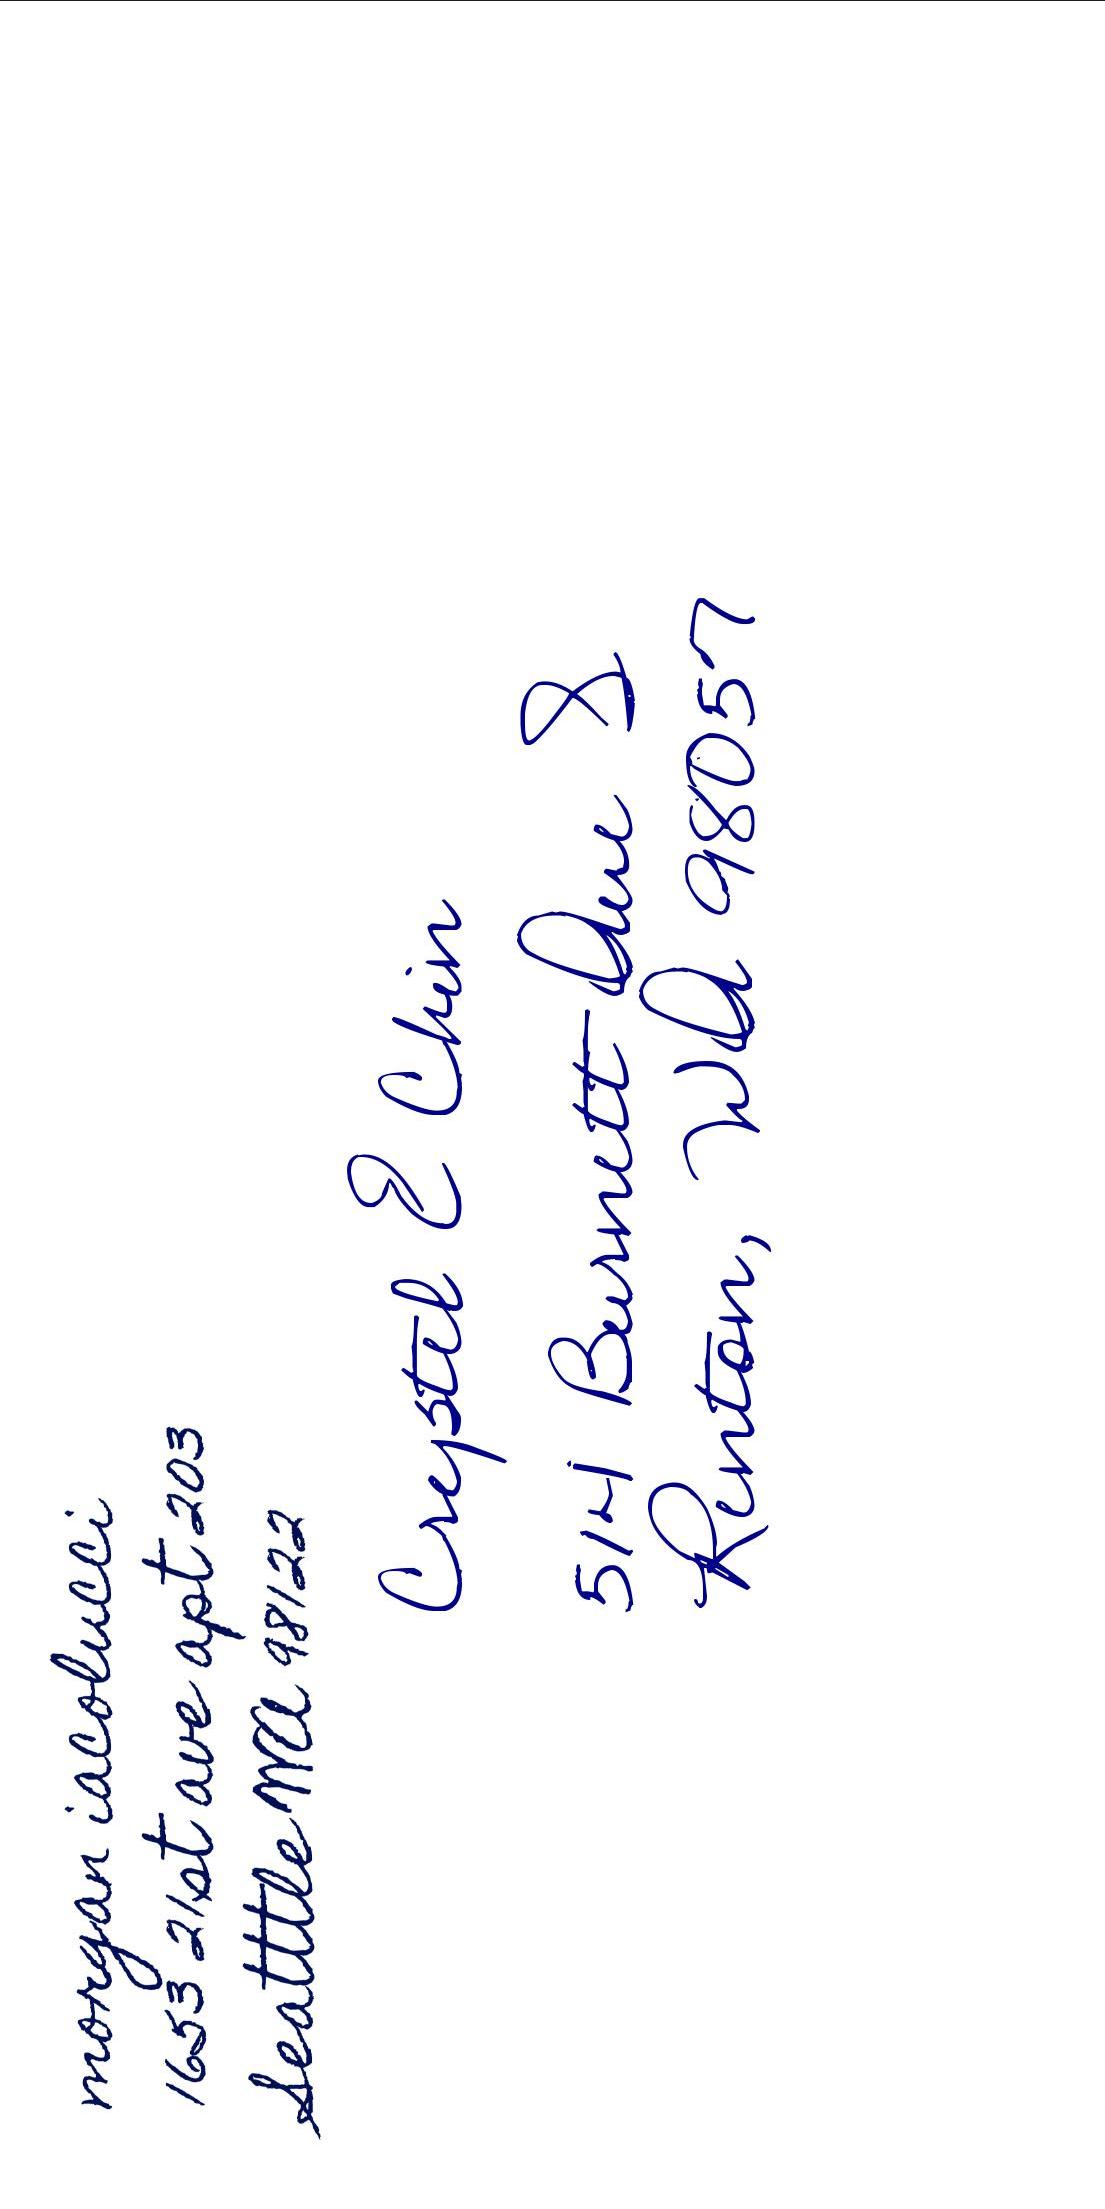 morgan iacolucci
1653 21st ave apt 203
Seattle WA 98122
Crystel E Chin
514 Burnett Ave S
Renton, WA 98057